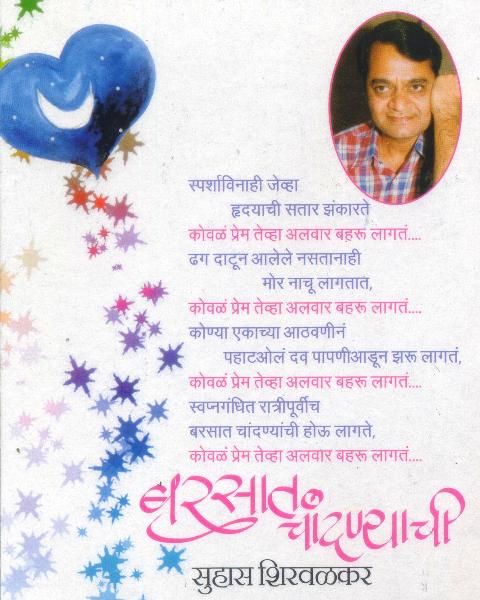 स्पर्शाविनाही जेव्हा
हृदयाची सतार झंकारते
कोवळं प्रेम तेव्हा अलवार बहरू लागतं....
ढग दाटून आलेले नसतानाही
मोर नाचू लागतात,
कोवळं प्रेम तेव्हा अलवार बहरू लागतं....
कोण्या एकाच्या आठवणीनं
पहाटओलं दव पापणीआडून झरू लागतं,
कोवळं प्रेम तेव्हा अलवार बहरू लागतं....
स्वप्नगंधित रात्रीपूर्वीच
बरसात चांदण्यांची होऊ लागते,
कोवळं प्रेम तेव्हा अलवार बहरू लागतं....
बरसात
चांदण्याची
सुहास शिरवळकर